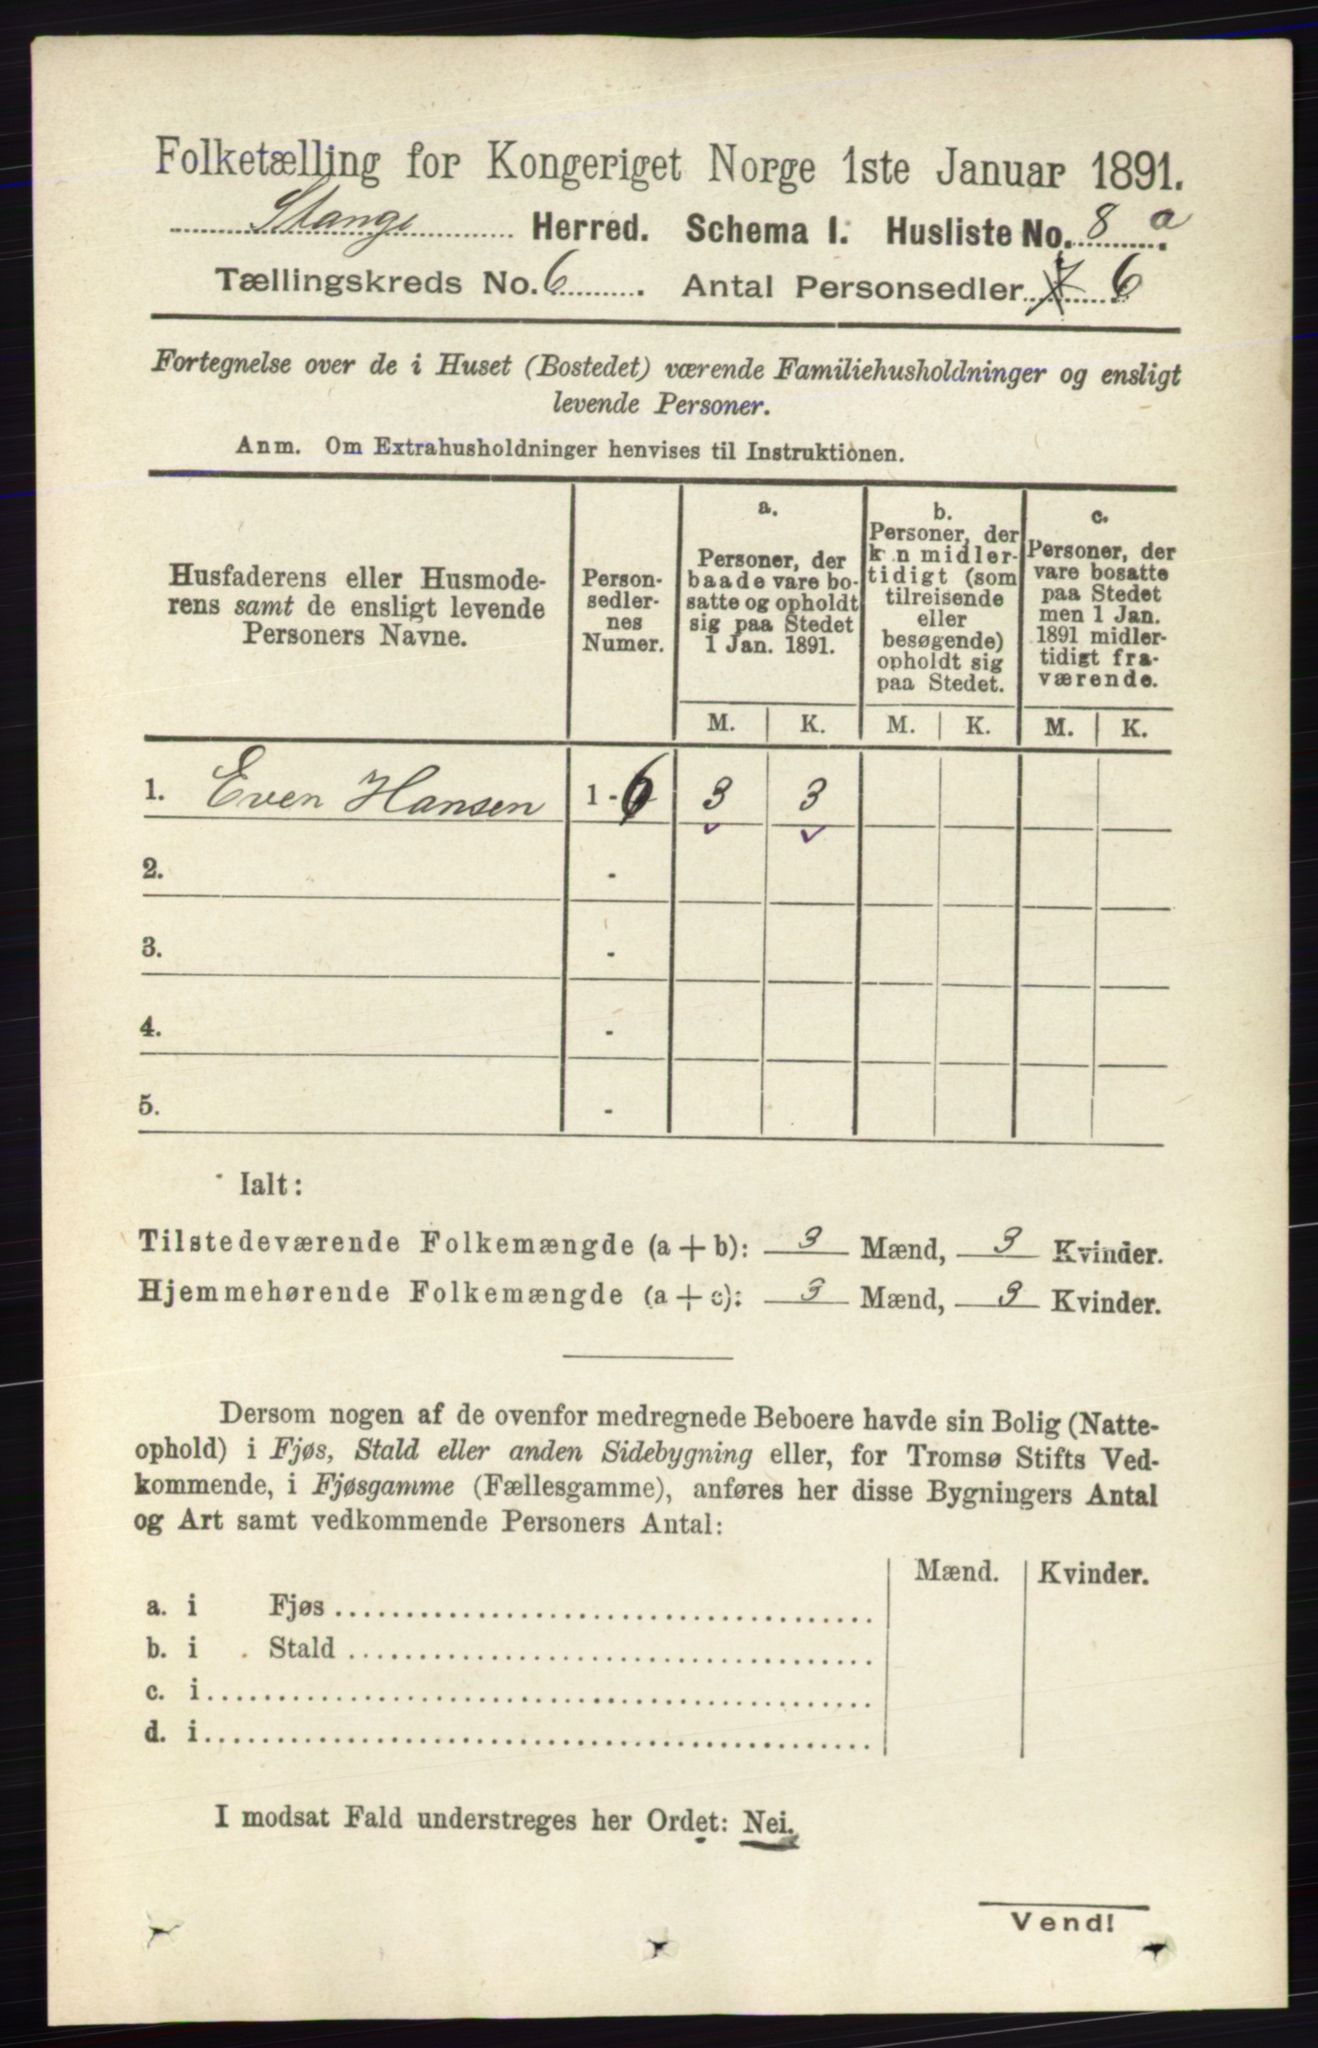 Folketælling for Kongeriget Norge 1ste Januar 1891.
Stange Herred. Schema I. Husliste No. 8 a
Tællingskreds No. 6. Antal Personsedler 7 6
Fortegnelse over de i Huset (Bostedet) værende Familiehusholdninger og ensligt
levende Personer.
Anm. Om Extrahusholdninger henvises til Instruktionen.
Husfaderens eller Husmode-
rens samt de ensligt levende
Personers Navne.
Person-
sedler-
nes
Numer.
a.
Personer, der
baade vare bo-
satte og opholdt
sig paa Stedet
1 Jan. 1891.
b.
Personer, der
k n midler-
tidigt (som
tilreisende
eller
besøgende)
opholdt sig
paa Stedet.
c.
Personer, der
vare bosatte
paa Stedet
men 1 Jan.
1891 midler-
tidigt fra-
værende.
M. K. M. K. M. K.
1. Even Hansen 1 - 6 3 3
2. -
3. -
4. -
5. -
Ialt:
Tilstedeværende Folkemængde (a + b): 3 Mænd, 3 Kvinder.
Hjemmehørende Folkemængde (a + c): 3 Mænd, 3 Kvinder.
Dersom nogen af de ovenfor medregnede Beboere havde sin Bolig (Natte-
ophold) i Fjøs, Stald eller anden Sidebygning eller, for Tromsø Stifts Ved-
kommende, i Fjøsgamme (Fællesgamme), anføres her disse Bygningers Antal
og Art samt vedkommende Personers Antal:
Mænd. Kvinder.
a. i Fjøs
b. i Stald
c. i
d. i
I modsat Fald understreges her Ordet: Nei.
Vend!